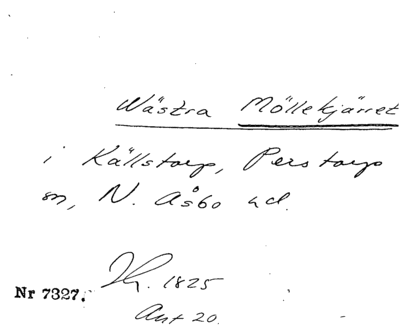 Wästra Möllekjärret
i Källstorp, Perstorp
sn, N. Åsbo hd.
Nr 7327. 1825
Ant 20.